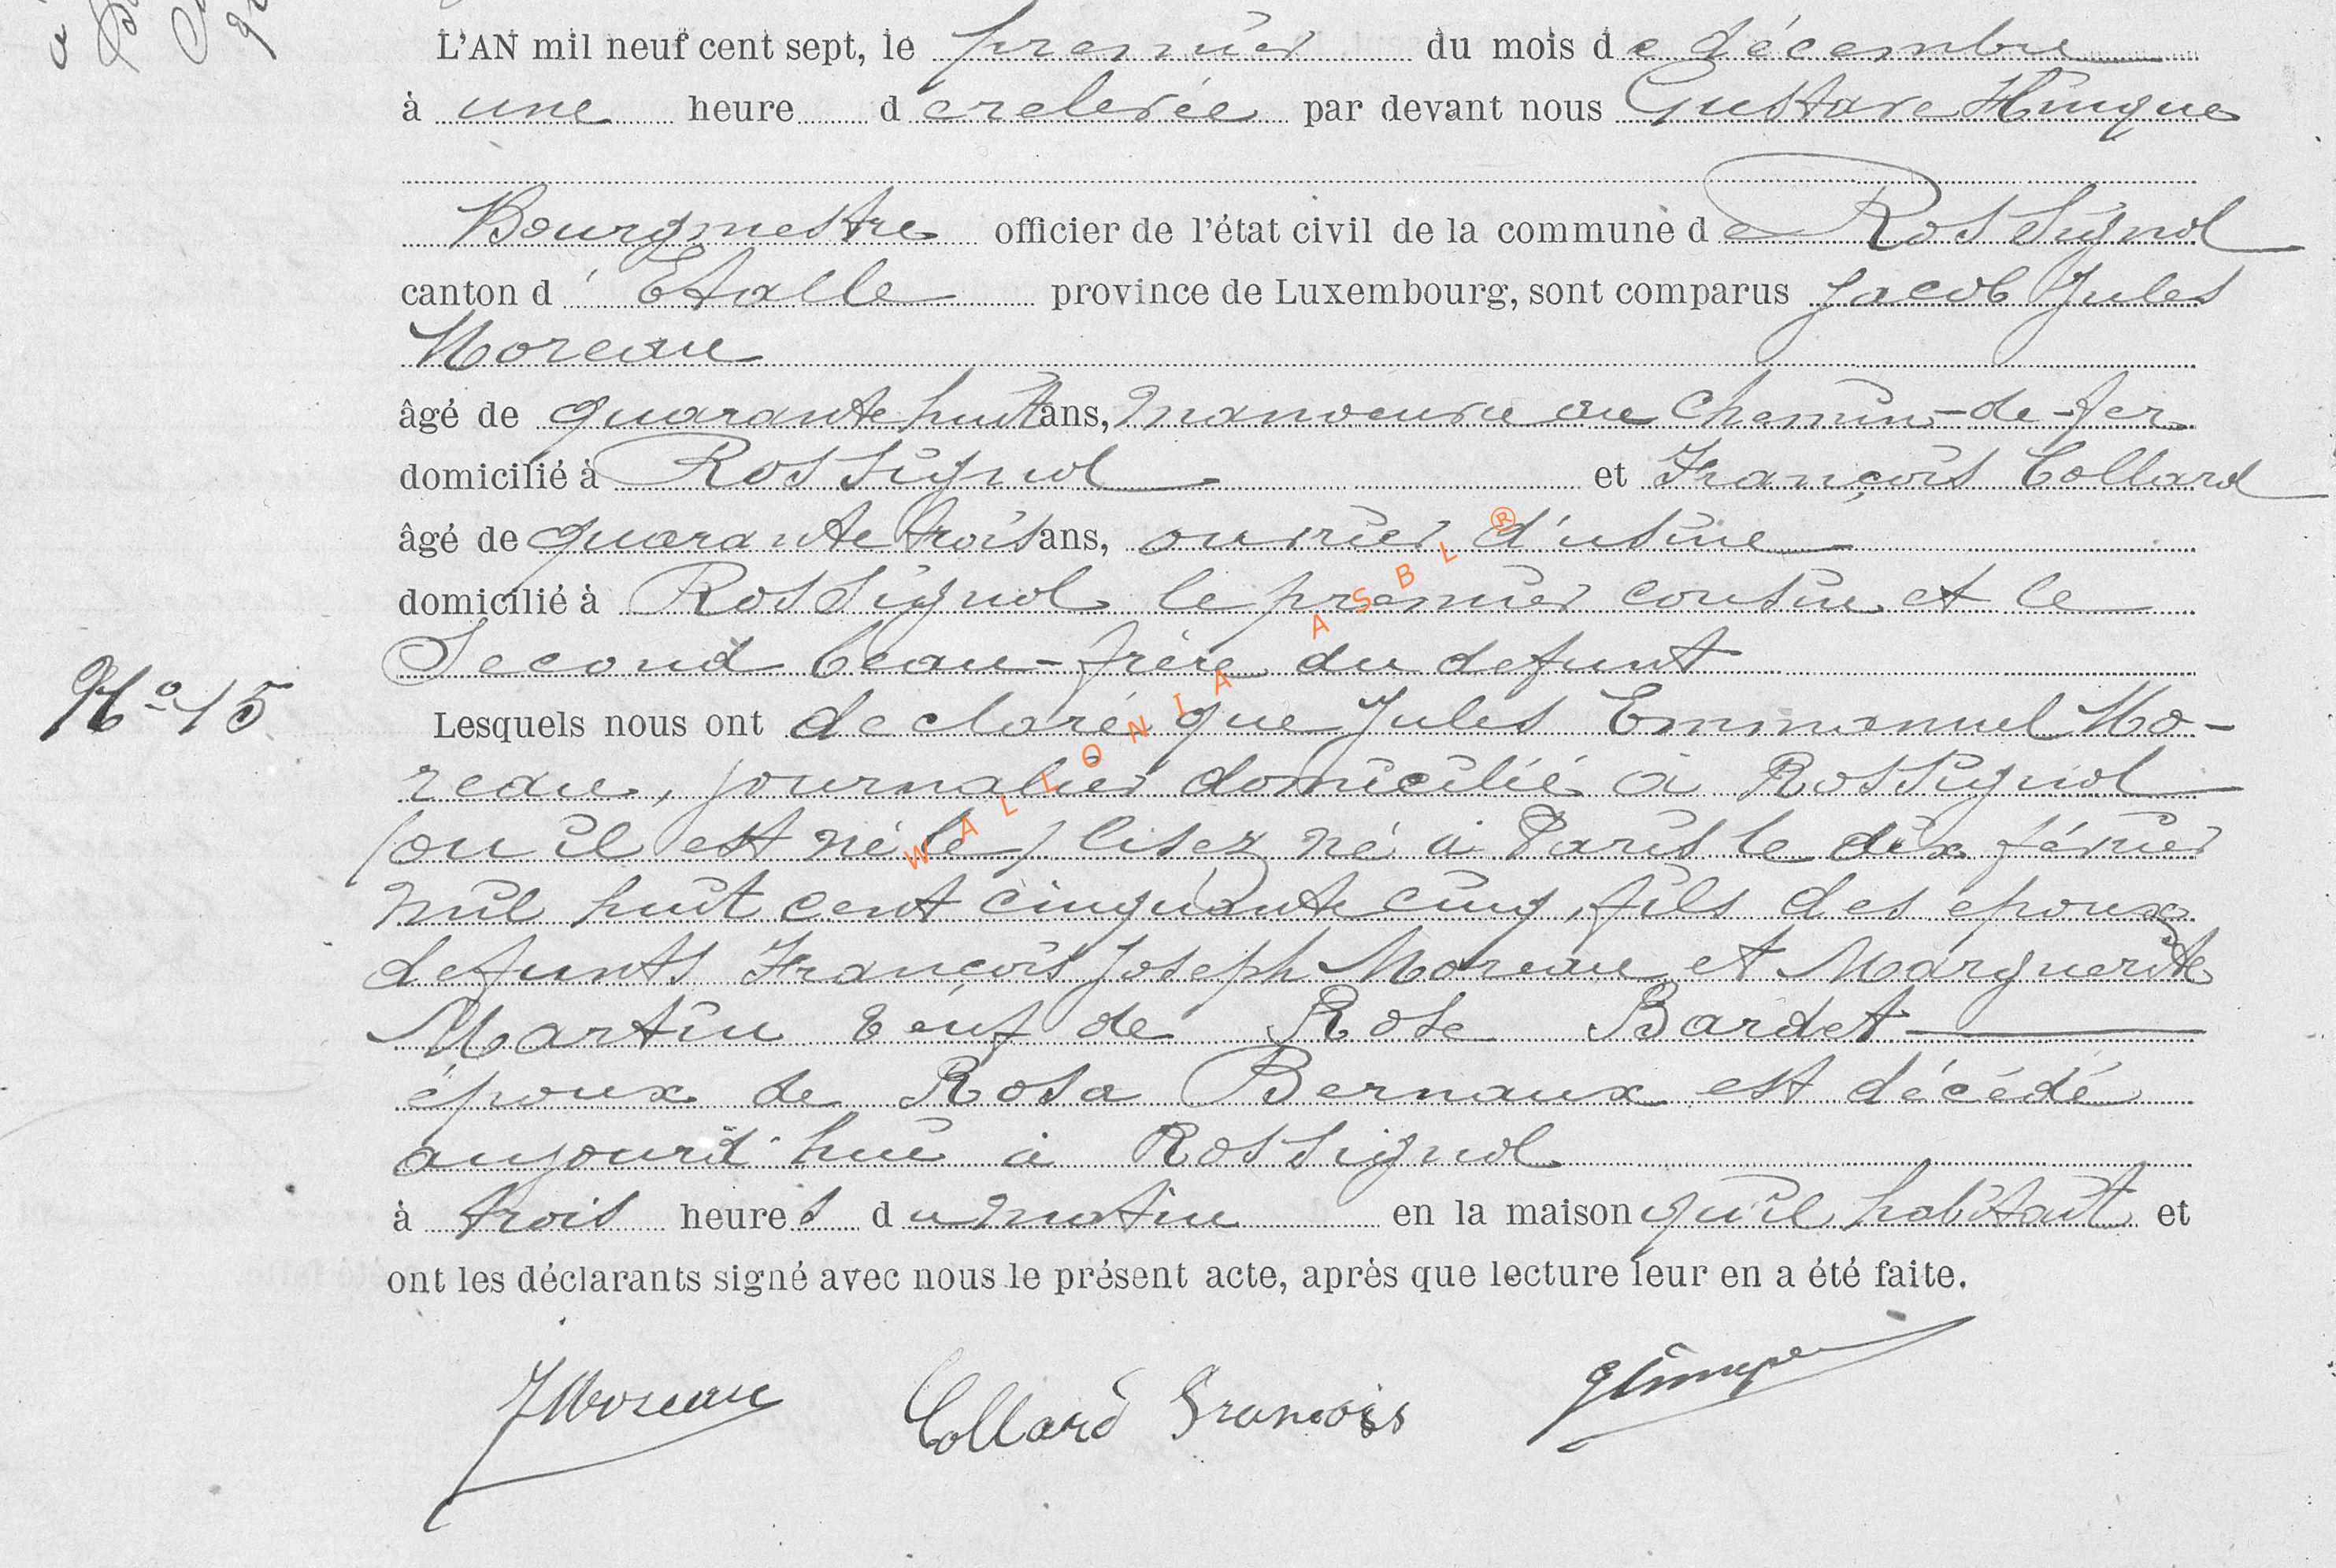 L'AN mil neuf cent sept, le premier du mois de décembre
à une heure d erelevée par devant nous Gustave Hinque
Bourgmestre officier de l'état civil de la commune de Rossignol
canton d' Etalle province de Luxembourg, sont comparus Jacob Jules
Moreau
âgé de quarante huit ans, manoeuvre au chemin-de-fer
domicilié à Rossignol et François Collard
âgé de quarante trois ans, ouvrier d'usine
domicilié à Rossignol le premier cousin et le
Second beau-frère du defunt
Nº 15
Lesquels nous ont declaré que Jules Emmanuel Mo-
reau, journalier domicilié à Rossignol
(ou il est né le) lisez né à Paris le dix février
mil huit cent cinquante cinq, fils des epoux
defunts François Joseph Moreau et Marguerite
Martin veuf de Rose Bardet
époux de Rosa Bernaux est décédé
aujourd'hui à Rossignol
à trois heures du matin en la maison qu'il habitait et
ont les déclarants signé avec nous le présent acte, après que lecture leur en a été faite.
JMoreau Collard Francois
WALLONIA ASBL ®